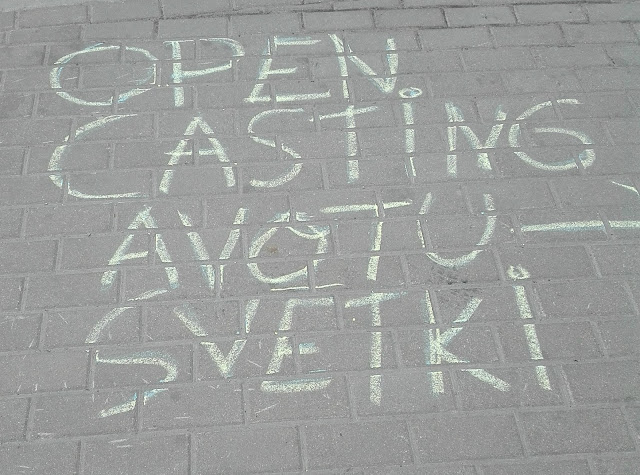 OPEN
CASTING
AVOTU —
SVETKI